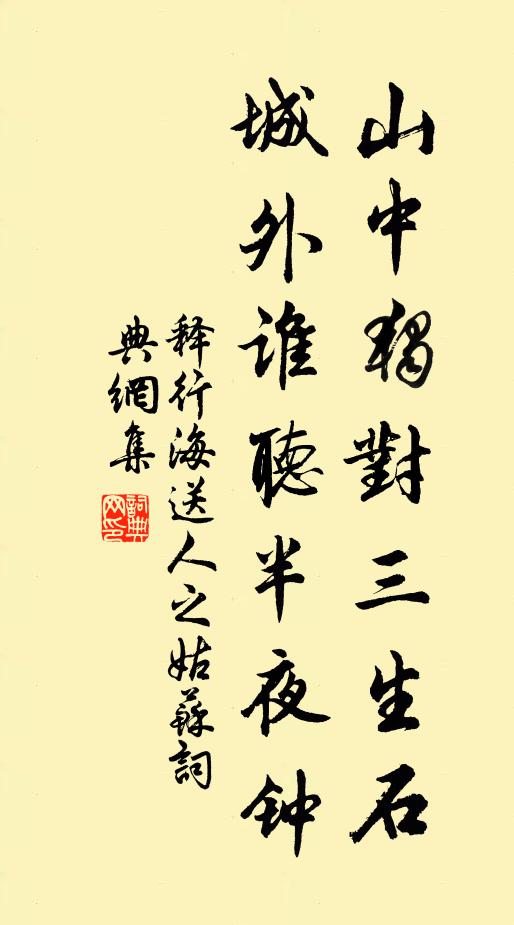 山中独對三生石
城外谁聽半夜钟
释行海送人之姑蘇詞
典網集
詞典网印